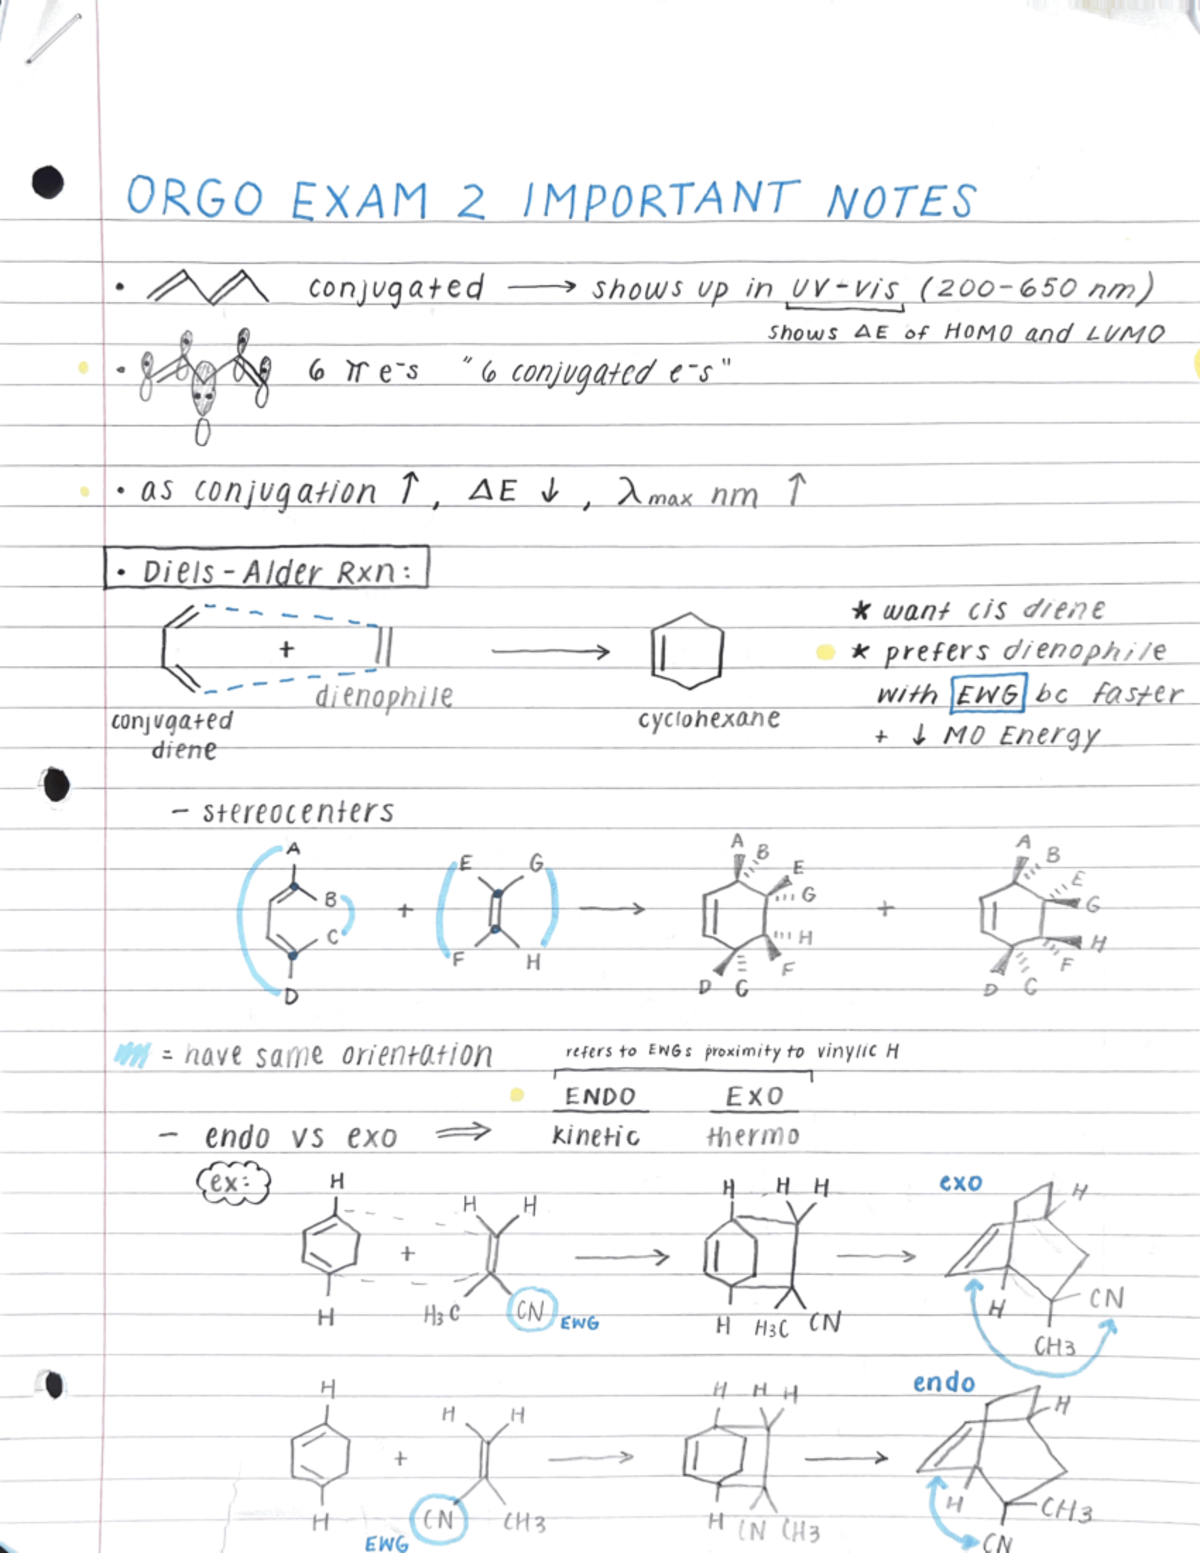 ORGO EXAM 2 IMPORTANT NOTES
• conjugated → shows up in UV-vis (200-650 nm)
shows ΔE of HOMO and LUMO
• 6 π e⁻s "6 conjugated e⁻s"
• as conjugation ↑, ΔE ↓, λmax nm ↑
• Diels-Alder Rxn:
* want cis diene
+ → * prefers dienophile
dienophile with EWG bc faster
conjugated diene cyclohexane + ↓ MO Energy
- stereocenters
A A B A B
E G E G E G
B + → +
C H H
F H F F
D D C D C
= have same orientation refers to EWGs proximity to vinylic H
ENDO EXO
- endo vs exo ⇒ kinetic thermo
ex: H H H H H exo H
H H
+ → →
H3C CN EWG H CN
H H H3C CN CH3
H H H H endo H
H H
+ → →
H CH3
H CN CH3 H CN CH3 CN
EWG